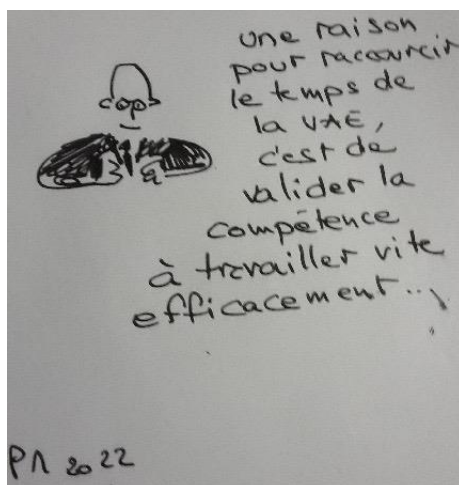 une raison
pour raccourcir
le temps de
la VAE,
c'est de
valider la
compétence
à travailler vite
efficacement...
2022